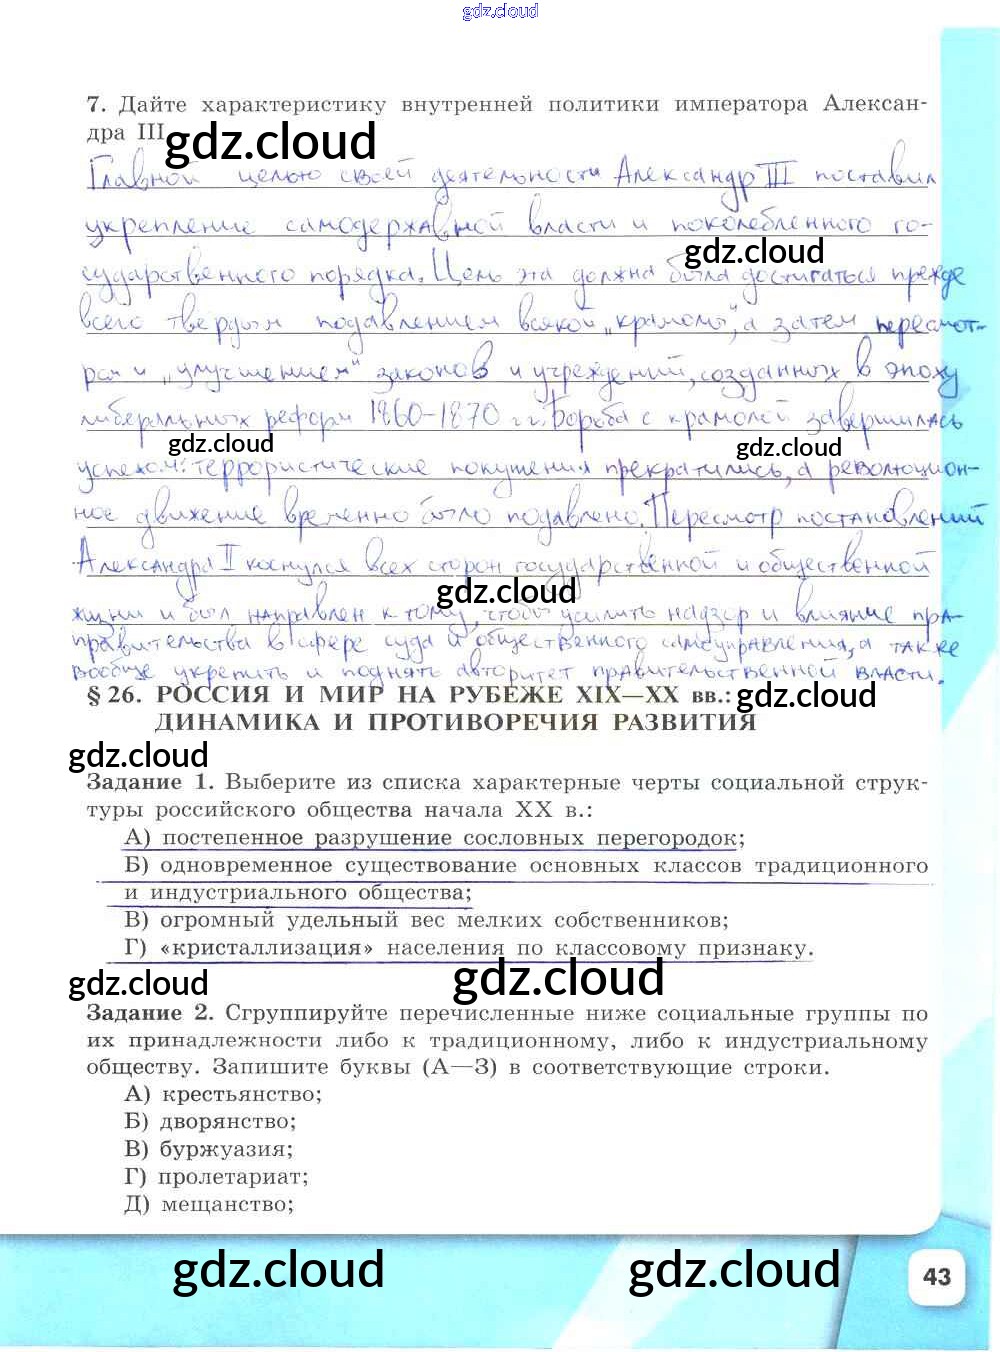 gdz.cloud
7. Дайте характеристику внутренней политики императора Алексан-
дра III
gdz.cloud
Главной целью своей деятельности Александр III поставил
укрепление самодержавной власти и поколебленного го-
gdz.cloud
сударственного порядка. Цель эта должна была достигаться прежде
всего твердым подавлением всякой „крамолы", а затем пересмот-
ром и „улучшением" законов и учреждений, созданных в эпоху
либеральных реформ 1860-1870 гг. Борьба с крамолой завершилась
gdz.cloud gdz.cloud
успехом: террористические покушения прекратились, а революцион-
ное движение временно было подавлено. Пересмотр постановлений
Александра II коснулся всех сторон государственной и общественной
gdz.cloud
жизни и был направлен к тому, чтобы усилить надзор и влияние пра-
правительства в сфере суда и общественного самоуправления, а также
вообще укрепить и поднять авторитет правительственной власти.
§ 26. РОССИЯ И МИР НА РУБЕЖЕ XIX—XX вв.:
gdz.cloud
ДИНАМИКА И ПРОТИВОРЕЧИЯ РАЗВИТИЯ
gdz.cloud
Задание 1. Выберите из списка характерные черты социальной струк-
туры российского общества начала XX в.:
А) постепенное разрушение сословных перегородок;
Б) одновременное существование основных классов традиционного
и индустриального общества;
В) огромный удельный вес мелких собственников;
Г) «кристаллизация» населения по классовому признаку.
gdz.cloud gdz.cloud
Задание 2. Сгруппируйте перечисленные ниже социальные группы по
их принадлежности либо к традиционному, либо к индустриальному
обществу. Запишите буквы (А—З) в соответствующие строки.
А) крестьянство;
Б) дворянство;
В) буржуазия;
Г) пролетариат;
Д) мещанство;
gdz.cloud gdz.cloud
43